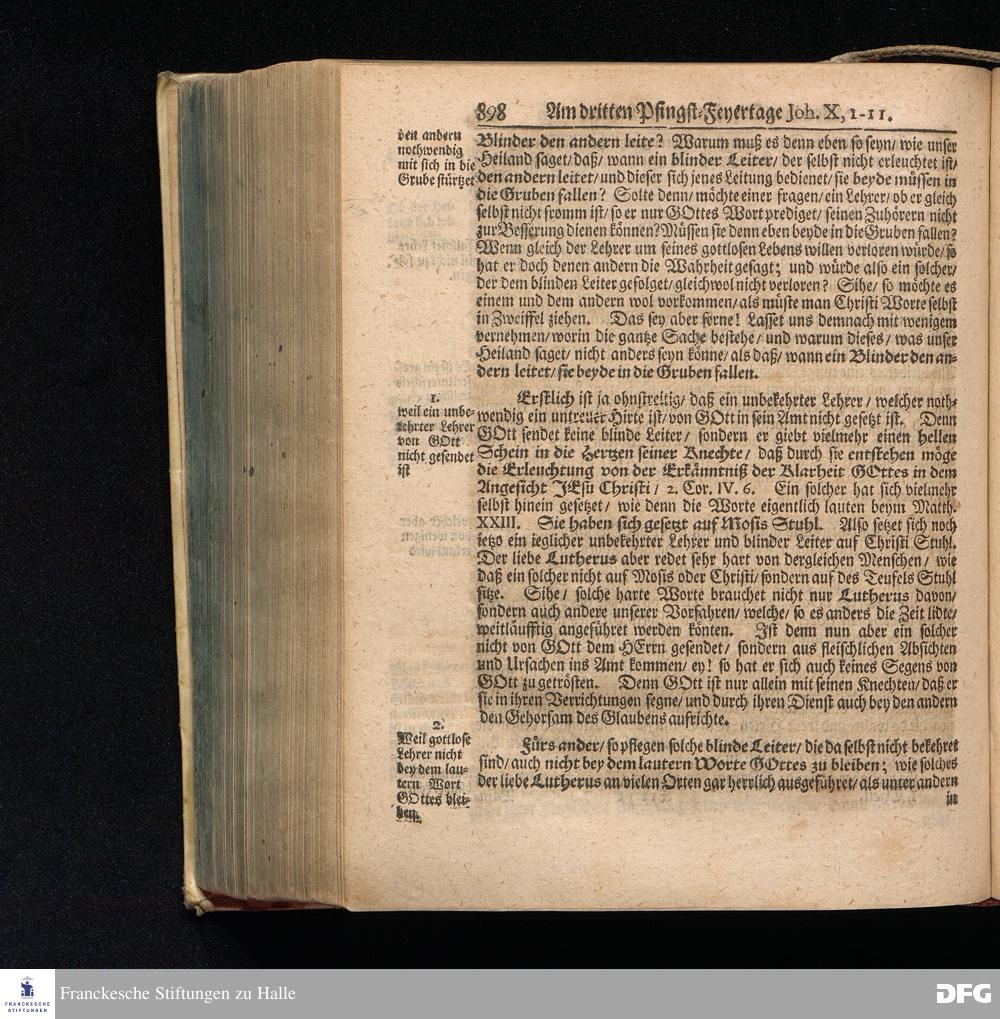 898 Am dritten Pfingst-Feyertage Joh. X, 1-11.
den andern
nothwendig
mit sich in die
Grube stürtzet
Blinder den andern leite? Warum muß es denn eben so seyn/ wie unser
Heiland saget/ daß/ wann ein blinder Leiter/ der selbst nicht erleuchtet ist/
den andern leitet/ und dieser sich jenes Leitung bedienet/ sie beyde müssen in
die Gruben fallen? Solte denn/ möchte einer fragen/ ein Lehrer/ ob er gleich
selbst nicht fromm ist/ so er nur GOttes Wort prediget/ seinen Zuhörern nicht
zur Besserung dienen können? Müssen sie denn eben beyde in die Gruben fallen?
Wenn gleich der Lehrer um seines gottlosen Lebens willen verloren würde/ so
hat er doch denen andern die Wahrheit gesagt; und würde also ein solcher/
der dem blinden Leiter gefolget/ gleichwol nicht verloren? Sihe/ so möchte es
einem und dem andern wol vorkommen/ als müste man Christi Worte selbst
in Zweiffel ziehen. Das sey aber ferne! Lasset uns demnach mit wenigem
vernehmen/ worin die gantze Sache bestehe/ und warum dieses/ was unser
Heiland saget/ nicht anders seyn könne/ als daß/ wann ein Blinder den an-
dern leitet/ sie beyde in die Gruben fallen.
1.
weil ein unbe-
kehrter Lehrer
von GOtt
nicht gesendet
ist
Erstlich ist ja ohnstreitig/ daß ein unbekehrter Lehrer/ welcher noth-
wendig ein untreuer Hirte ist/ von GOtt in sein Amt nicht gesetzt ist. Denn
GOtt sendet keine blinde Leiter/ sondern er giebt vielmehr einen hellen
Schein in die Hertzen seiner Knechte/ daß durch sie entstehen möge
die Erleuchtung von der Erkänntniß der Klarheit GOttes in dem
Angesicht JEsu Christi/ 2. Cor. IV. 6. Ein solcher hat sich vielmehr
selbst hinein gesetzet/ wie denn die Worte eigentlich lauten beym Matth.
XXIII. Sie haben sich gesetzt auf Mosis Stuhl. Also setzet sich noch
ietzo ein ieglicher unbekehrter Lehrer und blinder Leiter auf Christi Stuhl.
Der liebe Lutherus aber redet sehr hart von dergleichen Menschen/ wie
daß ein solcher nicht auf Mosis oder Christi/ sondern auf des Teufels Stuhl
sitze. Sihe/ solche harte Worte brauchet nicht nur Lutherus davon/
sondern auch andere unserer Vorfahren/ welche/ so es anders die Zeit lidte/
weitläufftig angeführet werden könten. Ist denn nun aber ein solcher
nicht von GOtt dem HErrn gesendet/ sondern aus fleischlichen Absichten
und Ursachen ins Amt kommen/ ey! so hat er sich auch keines Segens von
GOtt zu getrösten. Denn GOtt ist nur allein mit seinen Knechten/ daß er
sie in ihren Verrichtungen segne/ und durch ihren Dienst auch bey den andern
den Gehorsam des Glaubens aufrichte.
2.
Weil gottlose
Lehrer nicht
bey dem lau-
tern Wort
GOttes blei-
ben.
Fürs ander/ so pflegen solche blinde Leiter/ die da selbst nicht bekehret
sind/ auch nicht bey dem lautern Worte GOttes zu bleiben; wie solches
der liebe Lutherus an vielen Orten gar herrlich ausgeführet/ als unter andern
in
FRANCKESCHE
STIFTUNGEN
Franckesche Stiftungen zu Halle
DFG